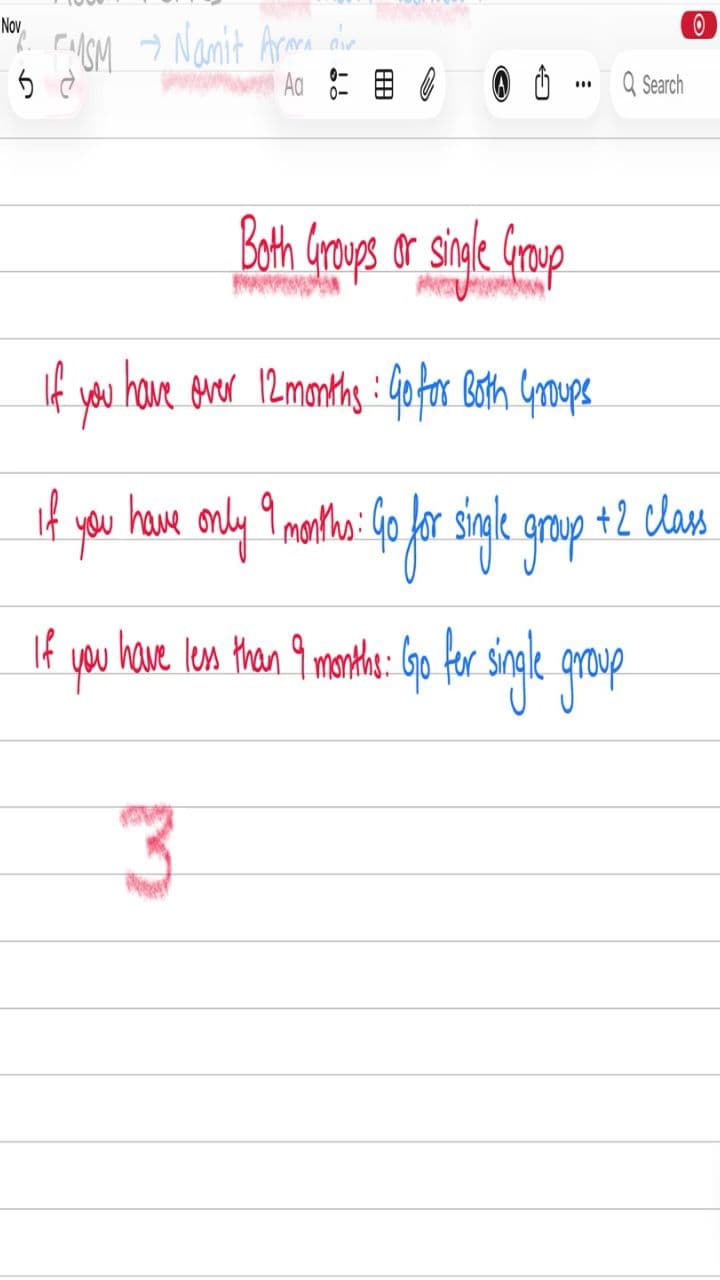 Nov
FMSM → Namit Arora sir
Aa
Search
Both Groups or single Group
If you have over 12 months : Go for Both Groups
If you have only 9 months: Go for single group + 2 class
If you have less than 9 months: Go for single group
3